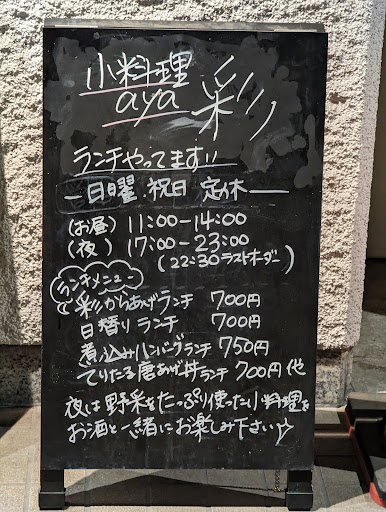 小料理 彩
aya
ランチやってます!!
ー日曜.祝日 定休ー
(お昼) 11:00-14:00
(夜) 17:00-23:00
(22:30ラストオーダー)
ランチメニュー
彩からあげランチ 700円
日替りランチ 700円
煮込みハンバーグランチ 750円
てりたる唐あげ丼ランチ 700円 他
夜は野菜をたっぷり使った小料理を
お酒と一緒にお楽しみ下さい☆